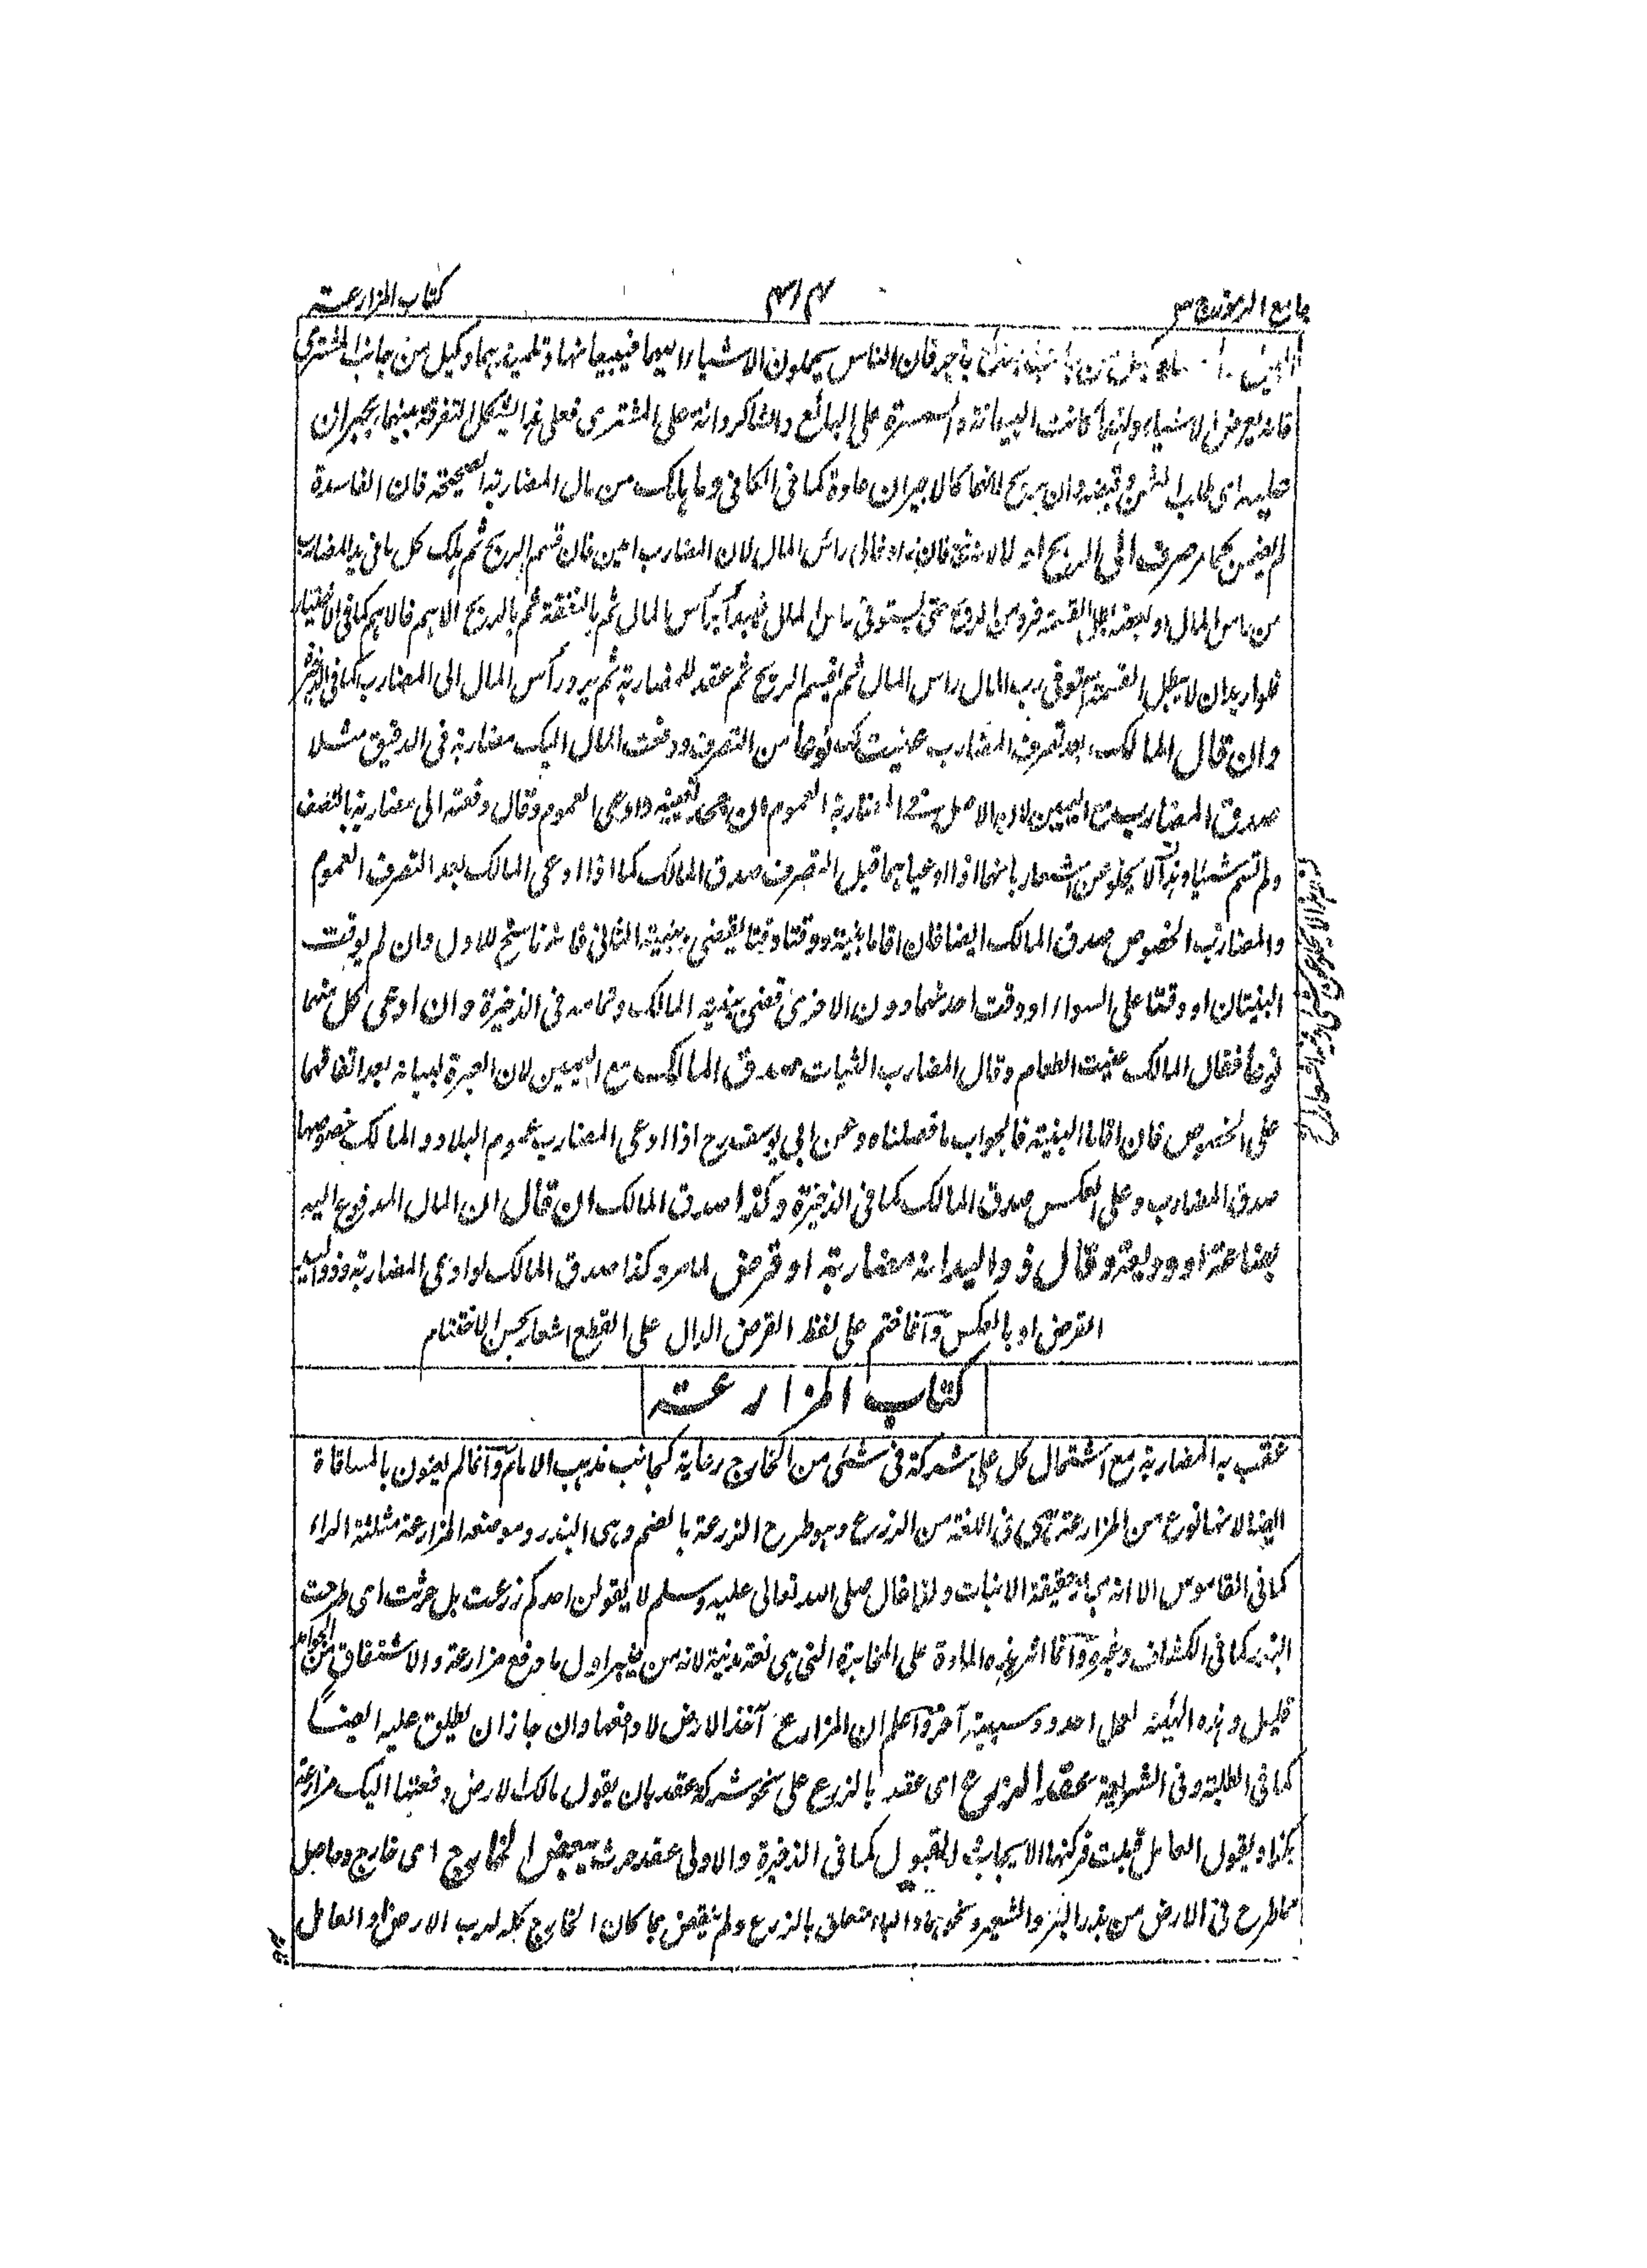 جامع الرموز ج ٣
٣١٤
كتاب المزارعة
باجر فان الناس يحملون الاشياء اليهما فيبيعانها وتلميذ بهما وكيل من جانب المشترى
كانت البياعة والسمسرة على البائع والشاكردانة على المشترى فعلى هذا يشكل التفرقة بينهما يجبران
عليه اى طلب الثمن وقبضه وان لم يربح لانهما كالاجيران عادة كما فى الكافى وما هلك من مال المضاربة الصحيحة فان الفاسدة
لم يضمن كما مر صرف الى الربح اولا لانه تبع فان زاد فالى راس المال لان المضارب امين فان قسم الربح ثم هلك كل ما فى يد المضارب
من راس المال او بعضه بطل القسمة فرد من الربح حتى يستوفى راس المال فيبدأ برأس المال ثم بالنفقة ثم بالربح الاهم فالاهم كما فى الاختيار
فلو اريد ان لا يبطل القسمة توفى رب المال راس المال ثم اقتسم الربح ثم عقد للمضاربة ثم يرد رأس المال الى المضارب كما فى الذخيرة
وان قال المالك بعد تصرف المضارب عنيت كه نوعا من التصرف ودفعت المال اليك مضاربة فى الدقيق مثلا
صدق المضارب مع اليمين لان الاصل فى المضاربة العموم وان جحد تعيينه وادعى العموم وقال دفعته الى مضاربة بالنصف
ولم تسم شيئا وهذا لا يخلو عن اشعار بانهما اذا ادعيا بهما قبل التصرف صدق المالك كما اذا ادعى المالك بعد التصرف العموم
والمضارب الخصوص صدق المالك ايضا فان اقاما بينة ووقتا وقتا يقضى ببينة الثانى فانه ناسخ للاول وان لم يوقت
البينتان او وقتا على السواء او وقت احدهما دون الاخرى قضى ببينة المالك وتمامه فى الذخيرة وان ادعى كل منهما
نوعا فقال المالك عنيت الطعام وقال المضارب الثياب صدق المالك مع اليمين لان العبرة لبيانه بعد اتفاقهما
على الخصوص فان اقاما البينة فالجواب ما فصلناه وعن ابى يوسف رح اذا ادعى المضارب عموم البلاد والمالك خصوصها
صدق المضارب وعلى العكس صدق المالك كما فى الذخيرة وكذا صدق المالك ان قال ان المال المدفوع اليه
بضاعة او وديعة وقال ذو اليد انه مضاربة او قرض لما مر وكذا صدق المالك لو ادعى المضاربة وذو اليد
القرض او بالعكس وانما ختم على لفظ القرض الدال على القطع اشعار بحسن الاختتام
كتاب المزارعة
عقب به المضاربة مع اشتمال كل على شركة فى شئ من الخارج رعاية لجانب مذهب الامام وانما لم يعنون بالمساقاة
ايضا لانها نوع من المزارعة هى فى اللغة من الزرع وهو طرح الزرعة بالضم وهى البذر وموضعه المزارعة مثلثة الراء
كما فى القاموس الا انه مجاز حقيقة الانبات ولذا قال صلى الله تعالى عليه وسلم لا يقولن احدكم زرعت بل حرثت اى طرحت
البذر كما فى الكشاف وغيره وانما اثر هذه المادة على المخابرة التى هى لغة مدنية لانه من خيبر اول ما دفع مزارعة والاشتقاق من الجوامد
قليل وهذه الهيئة لفعل احد وسببية آخر واعلم ان المزارع آخذ الارض لا دافعها وان جاز ان يطلق عليه ايضا
كما فى الطلبة وفى الشريعة عقد الزرع اى عقد بالزرع على نحو شركة عقد بان يقول مالك الارض دفعتها اليك مزارعة
بكذا ويقول العامل قبلت فركنها الايجاب والقبول كما فى الذخيرة والاولى عقد حرث ببعض الخارج اى خارج وحاصل
مما طرح فى الارض من بذر البر والشعير ونحوهما والباء متعلق بالزرع ولم ينقض بما كان الخارج كله لرب الارض او العامل